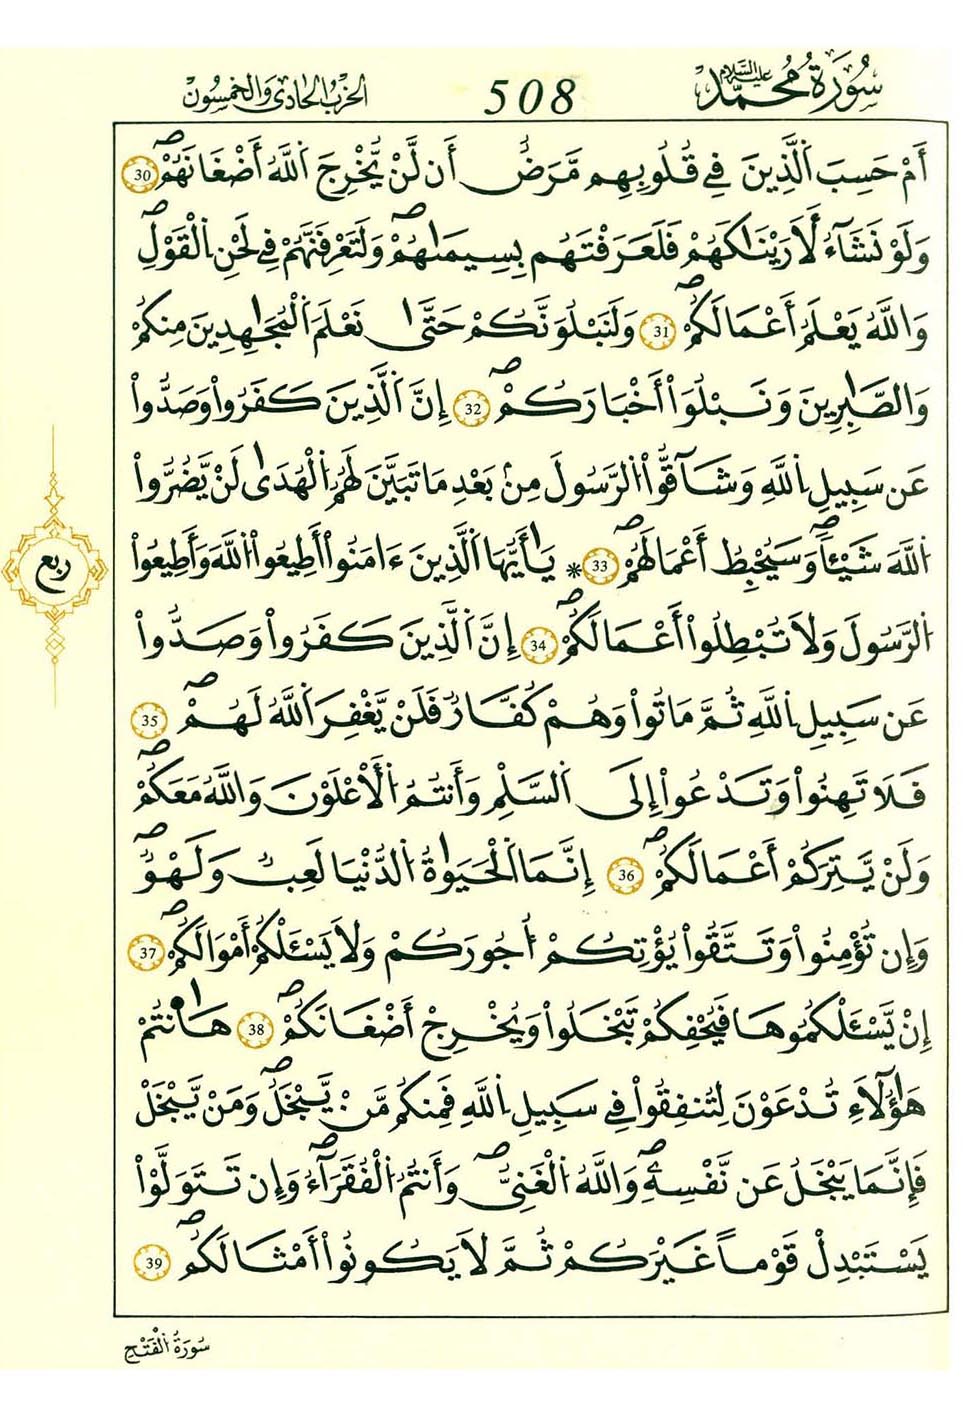 سُورَةُ مُحَمَّد عليه السلام 508 الحِزْبُ الحَادِي وَالخَمْسُون
أَمْ حَسِبَ اَ۬لذِينَ فِے قُلُوبِهِم مَّرَضٌ أَن لَّنْ يُّخْرِجَ اَ۬للَّهُ أَضْغَٰنَهُمْۖ 30
وَلَوْ نَشَآءُ لَأَرَيْنَٰكَهُمْ فَلَعَرَفْتَهُم بِسِيمَٰهُمْۖ وَلَتَعْرِفَنَّهُمْ فِے لَحْنِ اِ۬لْقَوْلِۖ
وَاللَّهُ يَعْلَمُ أَعْمَٰلَكُمْۖ 31 وَلَنَبْلُوَنَّكُمْ حَتَّىٰ نَعْلَمَ اَ۬لْمُجَٰهِدِينَ مِنكُمْ
وَالصَّٰبِرِينَ وَنَبْلُوَاْ أَخْبَارَكُمْۖ 32 إِنَّ اَ۬لذِينَ كَفَرُواْ وَصَدُّواْ
عَن سَبِيلِ اِ۬للَّهِ وَشَآقُّواْ اُ۬لرَّسُولَ مِنۢ بَعْدِ مَا تَبَيَّنَ لَهُمُ اُ۬لْهُدَىٰ لَنْ يَّضُرُّواْ
اُ۬للَّهَ شَيْـٔاًۖ وَسَيُحْبِطُ أَعْمَٰلَهُمْۖ 33 * يَٰٓأَيُّهَا اَ۬لذِينَ ءَامَنُواْ أَطِيعُواْ اُ۬للَّهَ وَأَطِيعُواْ
اُ۬لرَّسُولَ وَلَا تُبْطِلُواْ أَعْمَٰلَكُمْۖ 34 إِنَّ اَ۬لذِينَ كَفَرُواْ وَصَدُّواْ
عَن سَبِيلِ اِ۬للَّهِ ثُمَّ مَاتُواْ وَهُمْ كُفَّارٌ فَلَنْ يَّغْفِرَ اَ۬للَّهُ لَهُمْۖ 35
فَلَا تَهِنُواْ وَتَدْعُواْ إِلَى اَ۬لسَّلْمِ وَأَنتُمُ اُ۬لْأَعْلَوْنَ وَاللَّهُ مَعَكُمْۖ
وَلَنْ يَّتِرَكُمْ أَعْمَٰلَكُمْۖ 36 إِنَّمَا اَ۬لْحَيَوٰةُ اُ۬لدُّنْيَا لَعِبٌ وَلَهْوٌۖ
وَإِن تُؤْمِنُواْ وَتَتَّقُواْ يُؤْتِكُمْ أُجُورَكُمْ وَلَا يَسْـَٔلْكُمْ أَمْوَٰلَكُمْۖ 37
إِنْ يَّسْـَٔلْكُمُوهَا فَيُحْفِكُمْ تَبْخَلُواْ وَيُخْرِجْ أَضْغَٰنَكُمْۖ 38 هَٰٓأَنتُمْ
هَٰٓؤُلَآءِ تُدْعَوْنَ لِتُنفِقُواْ فِے سَبِيلِ اِ۬للَّهِ فَمِنكُم مَّنْ يَّبْخَلُۖ وَمَنْ يَّبْخَلْ
فَإِنَّمَا يَبْخَلُ عَن نَّفْسِهِۦۖ وَاللَّهُ اُ۬لْغَنِيُّۖ وَأَنتُمُ اُ۬لْفُقَرَآءُۖ وَإِن تَتَوَلَّوْاْ
يَسْتَبْدِلْ قَوْماً غَيْرَكُمْ ثُمَّ لَا يَكُونُواْ أَمْثَٰلَكُمْۖ 39
ربع
سُورَةُ اُ۬لْفَتْحِ